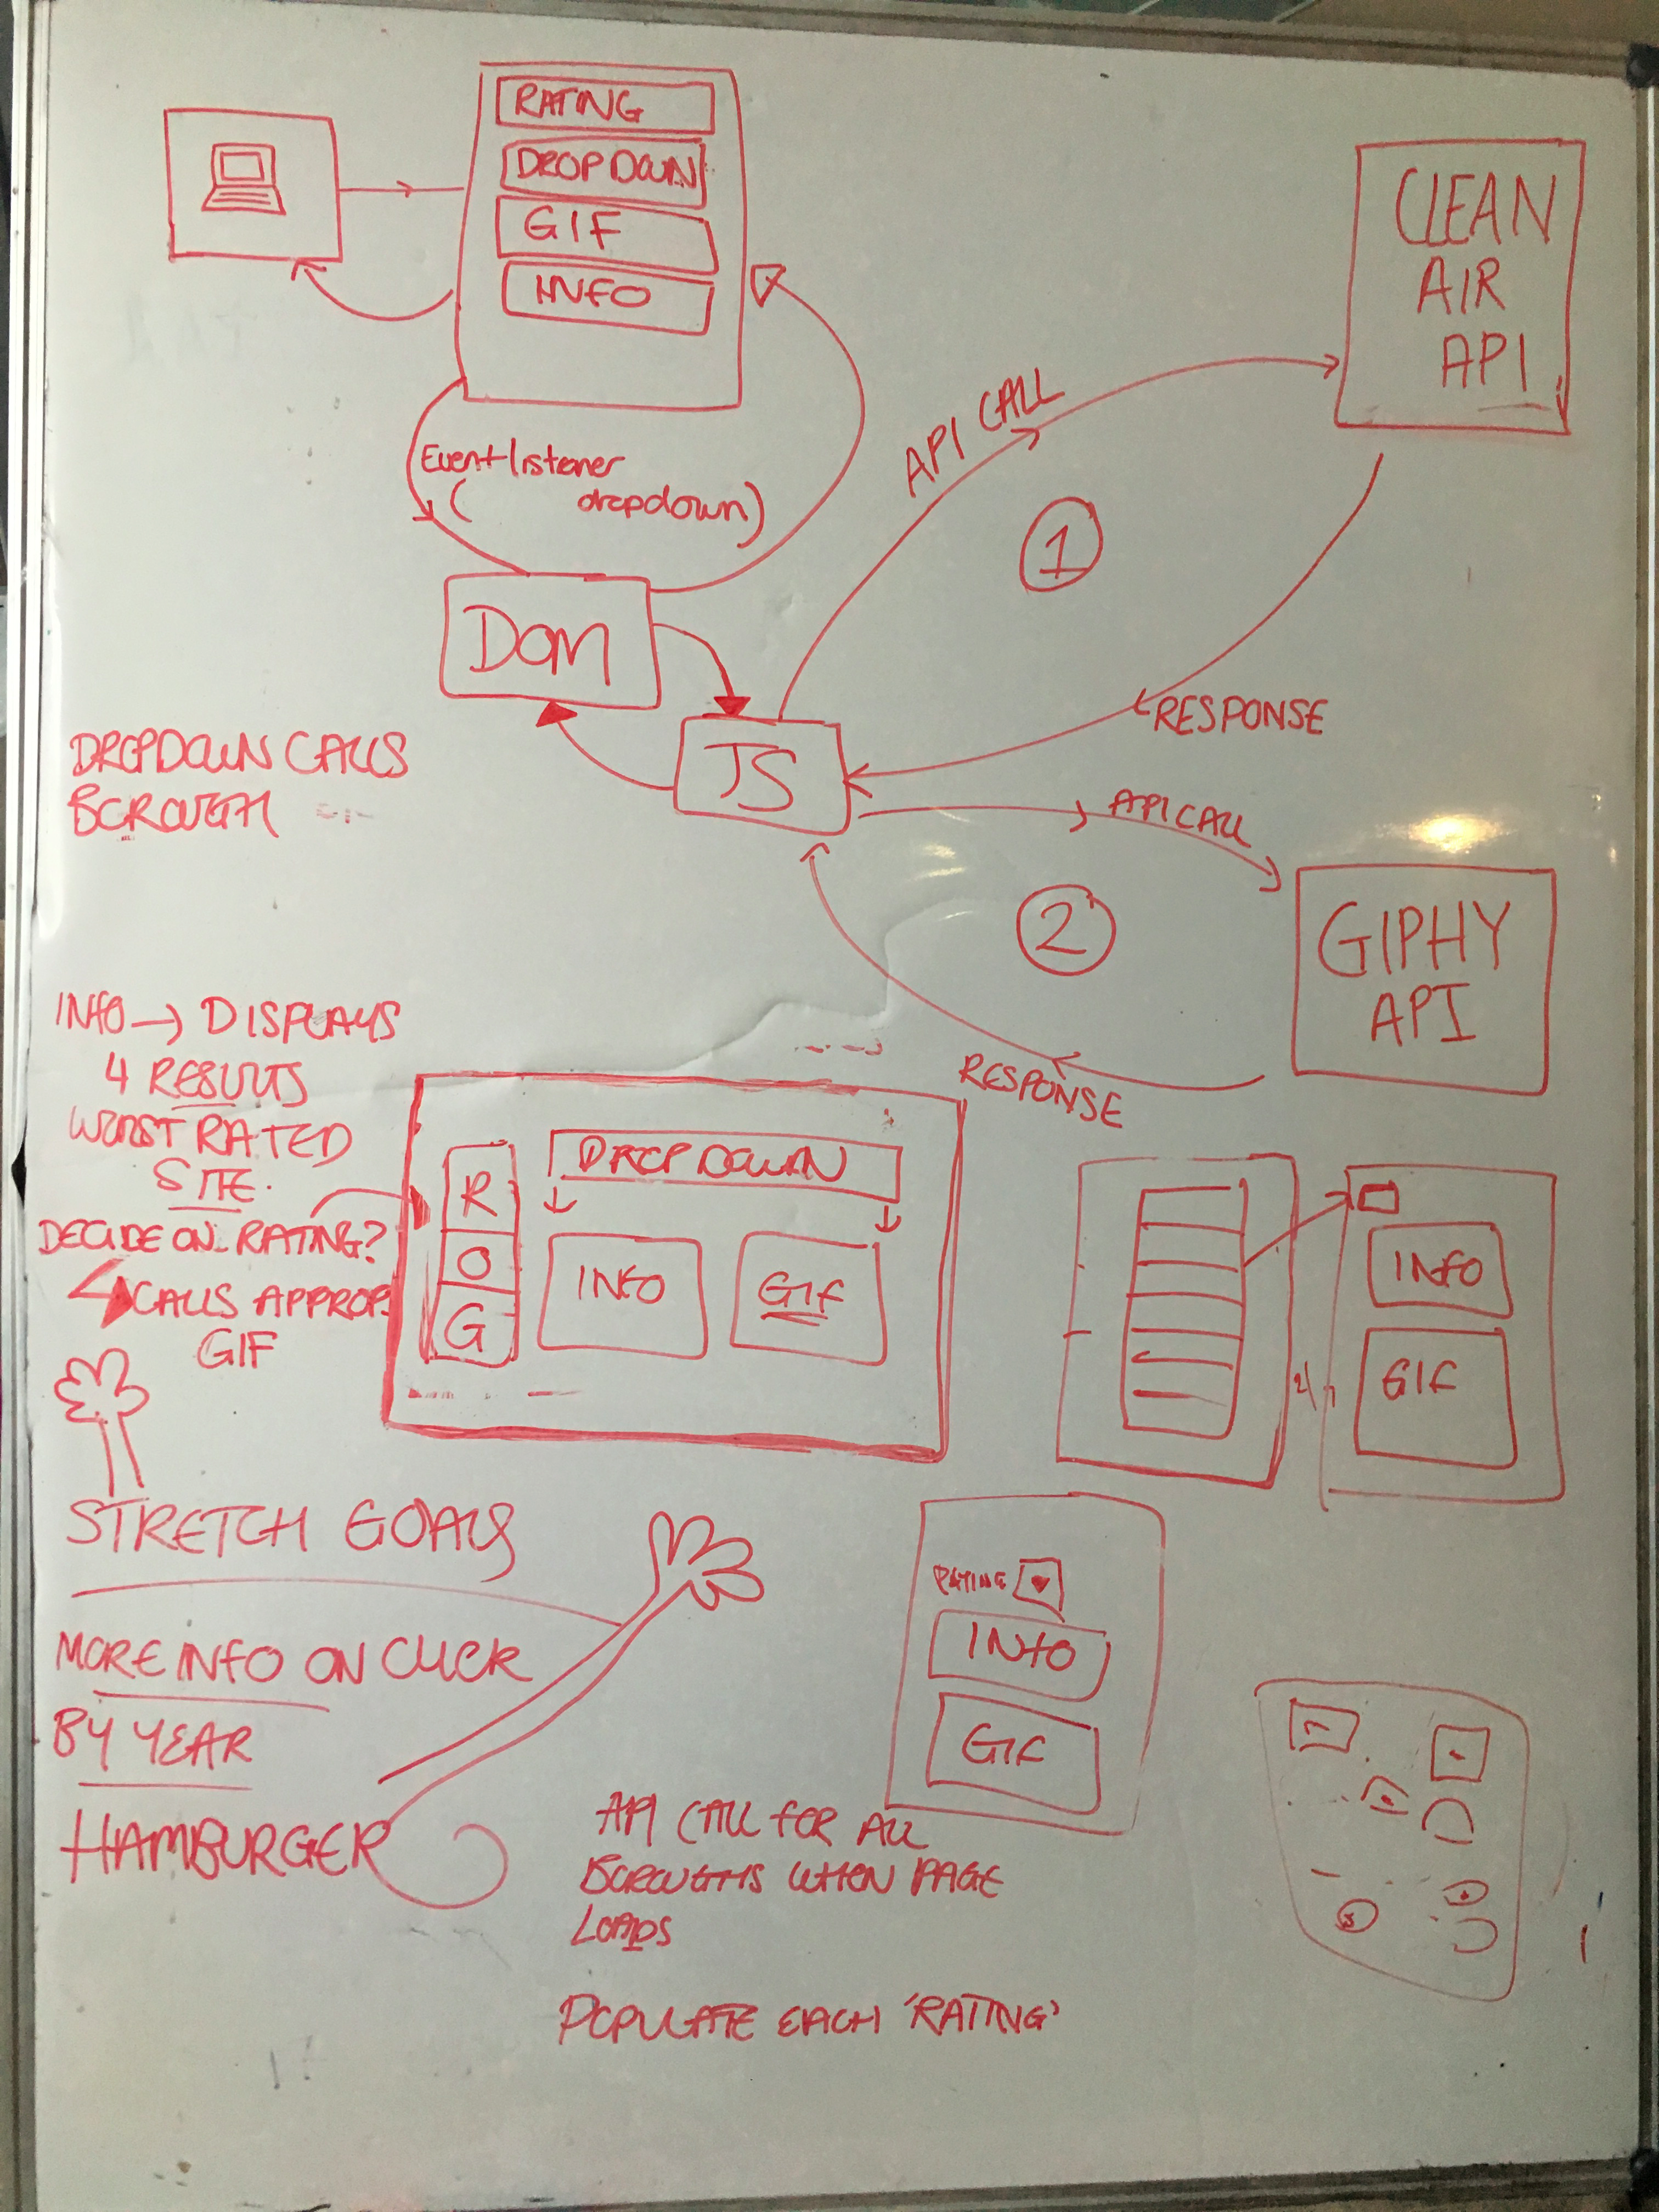 RATING
DROPDOWN
GIF
INFO
CLEAN
AIR
API
Eventlistener
( dropdown)
API CALL
1
DOM
JS
RESPONSE
DROPDOWN CALLS
BOROUGH
API CALL
2
GIPHY
API
RESPONSE
INFO → DISPLAYS
4 RESULTS
WORST RATED
SITE.
DECIDE ON RATING?
CALLS APPROP.
GIF
DROPDOWN
R
O
G
INFO
GIF
INFO
GIF
STRETCH GOALS
MORE INFO ON CLICK
BY YEAR
HAMBURGER
RATING
INFO
GIF
API CALL FOR ALL
BOROUGHS WHEN PAGE
LOADS
POPULATE EACH 'RATING'